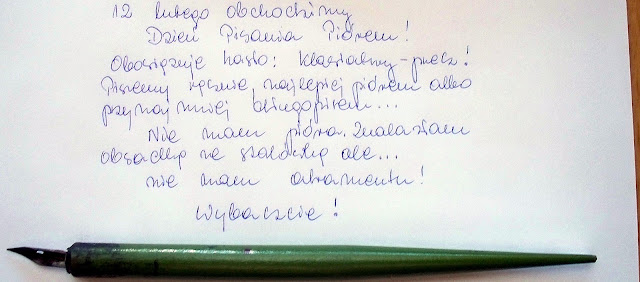 12 lutego obchodzimy
Dzień Pisania Piórem!
Obowiązuje hasło: klawiatury - precz!
Piszemy ręcznie, najlepiej piórem albo
przynajmniej długopisem...
Nie mam pióra. Znalazłam
obsadkę ze stalówką ale...
nie mam atramentu!
Wybaczcie!